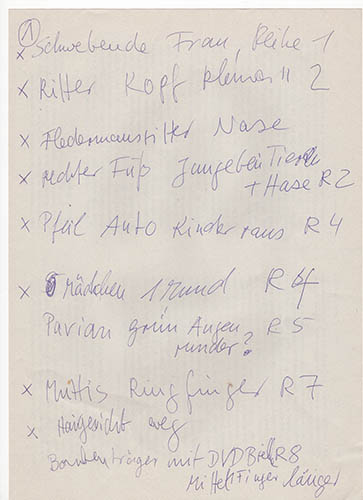 1
x Schwebende Frau, Reihe 1
x Ritter Kopf kleiner " 2
x Fledermausritter Nase
x rechter Fuß Junge bei Tieren
+ Hase R 2
x Pfeil Auto Kinder raus R 4
x Mädchen Mund R 4
Pavian grün Augen R 5
runder?
x Muttis Ringfinger R 7
x Haigesicht weg
Bombenträger mit DVD R 8
Mittelfinger länger